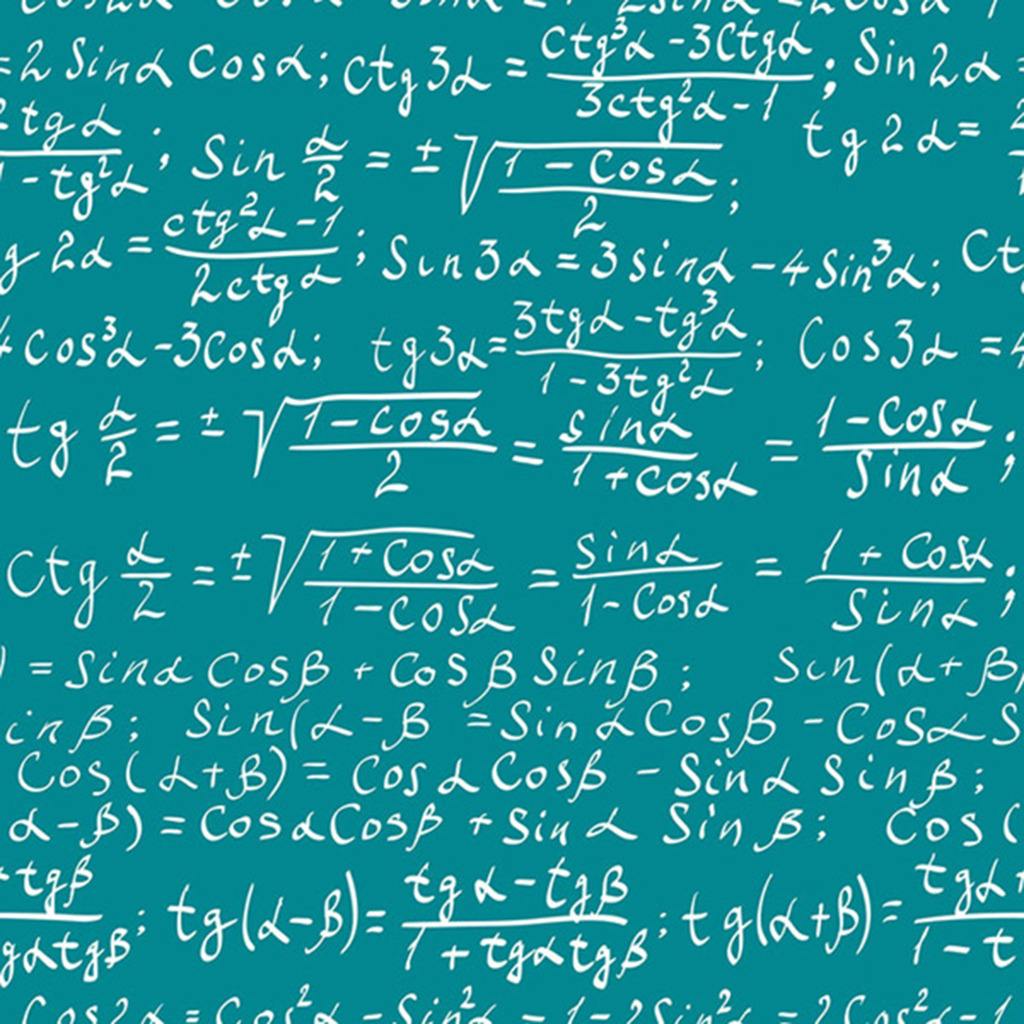 = 2 Sinα Cosα; ctg 3α = (Ctg³α - 3Ctgα)/(3ctg²α - 1); Sin 2α =
2tgα/(1 - tg²α); Sin α/2 = ±√((1 - Cosα)/2); tg 2α =
g 2α = (ctg²α - 1)/(2ctgα); Sin 3α = 3 sinα - 4 Sin³α; Ct
4 cos³α - 3Cosα; tg 3α = (3tgα - tg³α)/(1 - 3tg²α); Cos 3α = 4
tg α/2 = ±√((1 - cosα)/2) = sinα/(1 + cosα) = (1 - Cosα)/Sinα;
Ctg α/2 = ±√((1 + Cosα)/(1 - Cosα)) = Sinα/(1 - Cosα) = (1 + Cosα)/Sinα;
) = Sinα Cosβ + Cosβ Sinβ; Sin(α + β)
inβ; Sin(α - β = Sin α Cosβ - Cosα S
Cos(α + β) = Cosα Cosβ - Sinα Sinβ;
α - β) = Cosα Cosβ + Sinα Sinβ; Cos(
tgβ/gαtgβ; tg(α - β) = (tgα - tgβ)/(1 + tgαtgβ); tg(α + β) = tgα +/1 - t
Cos2α = Cos²α - Sin²α = 1 - 2Sin²α = 2Cos²α - 1